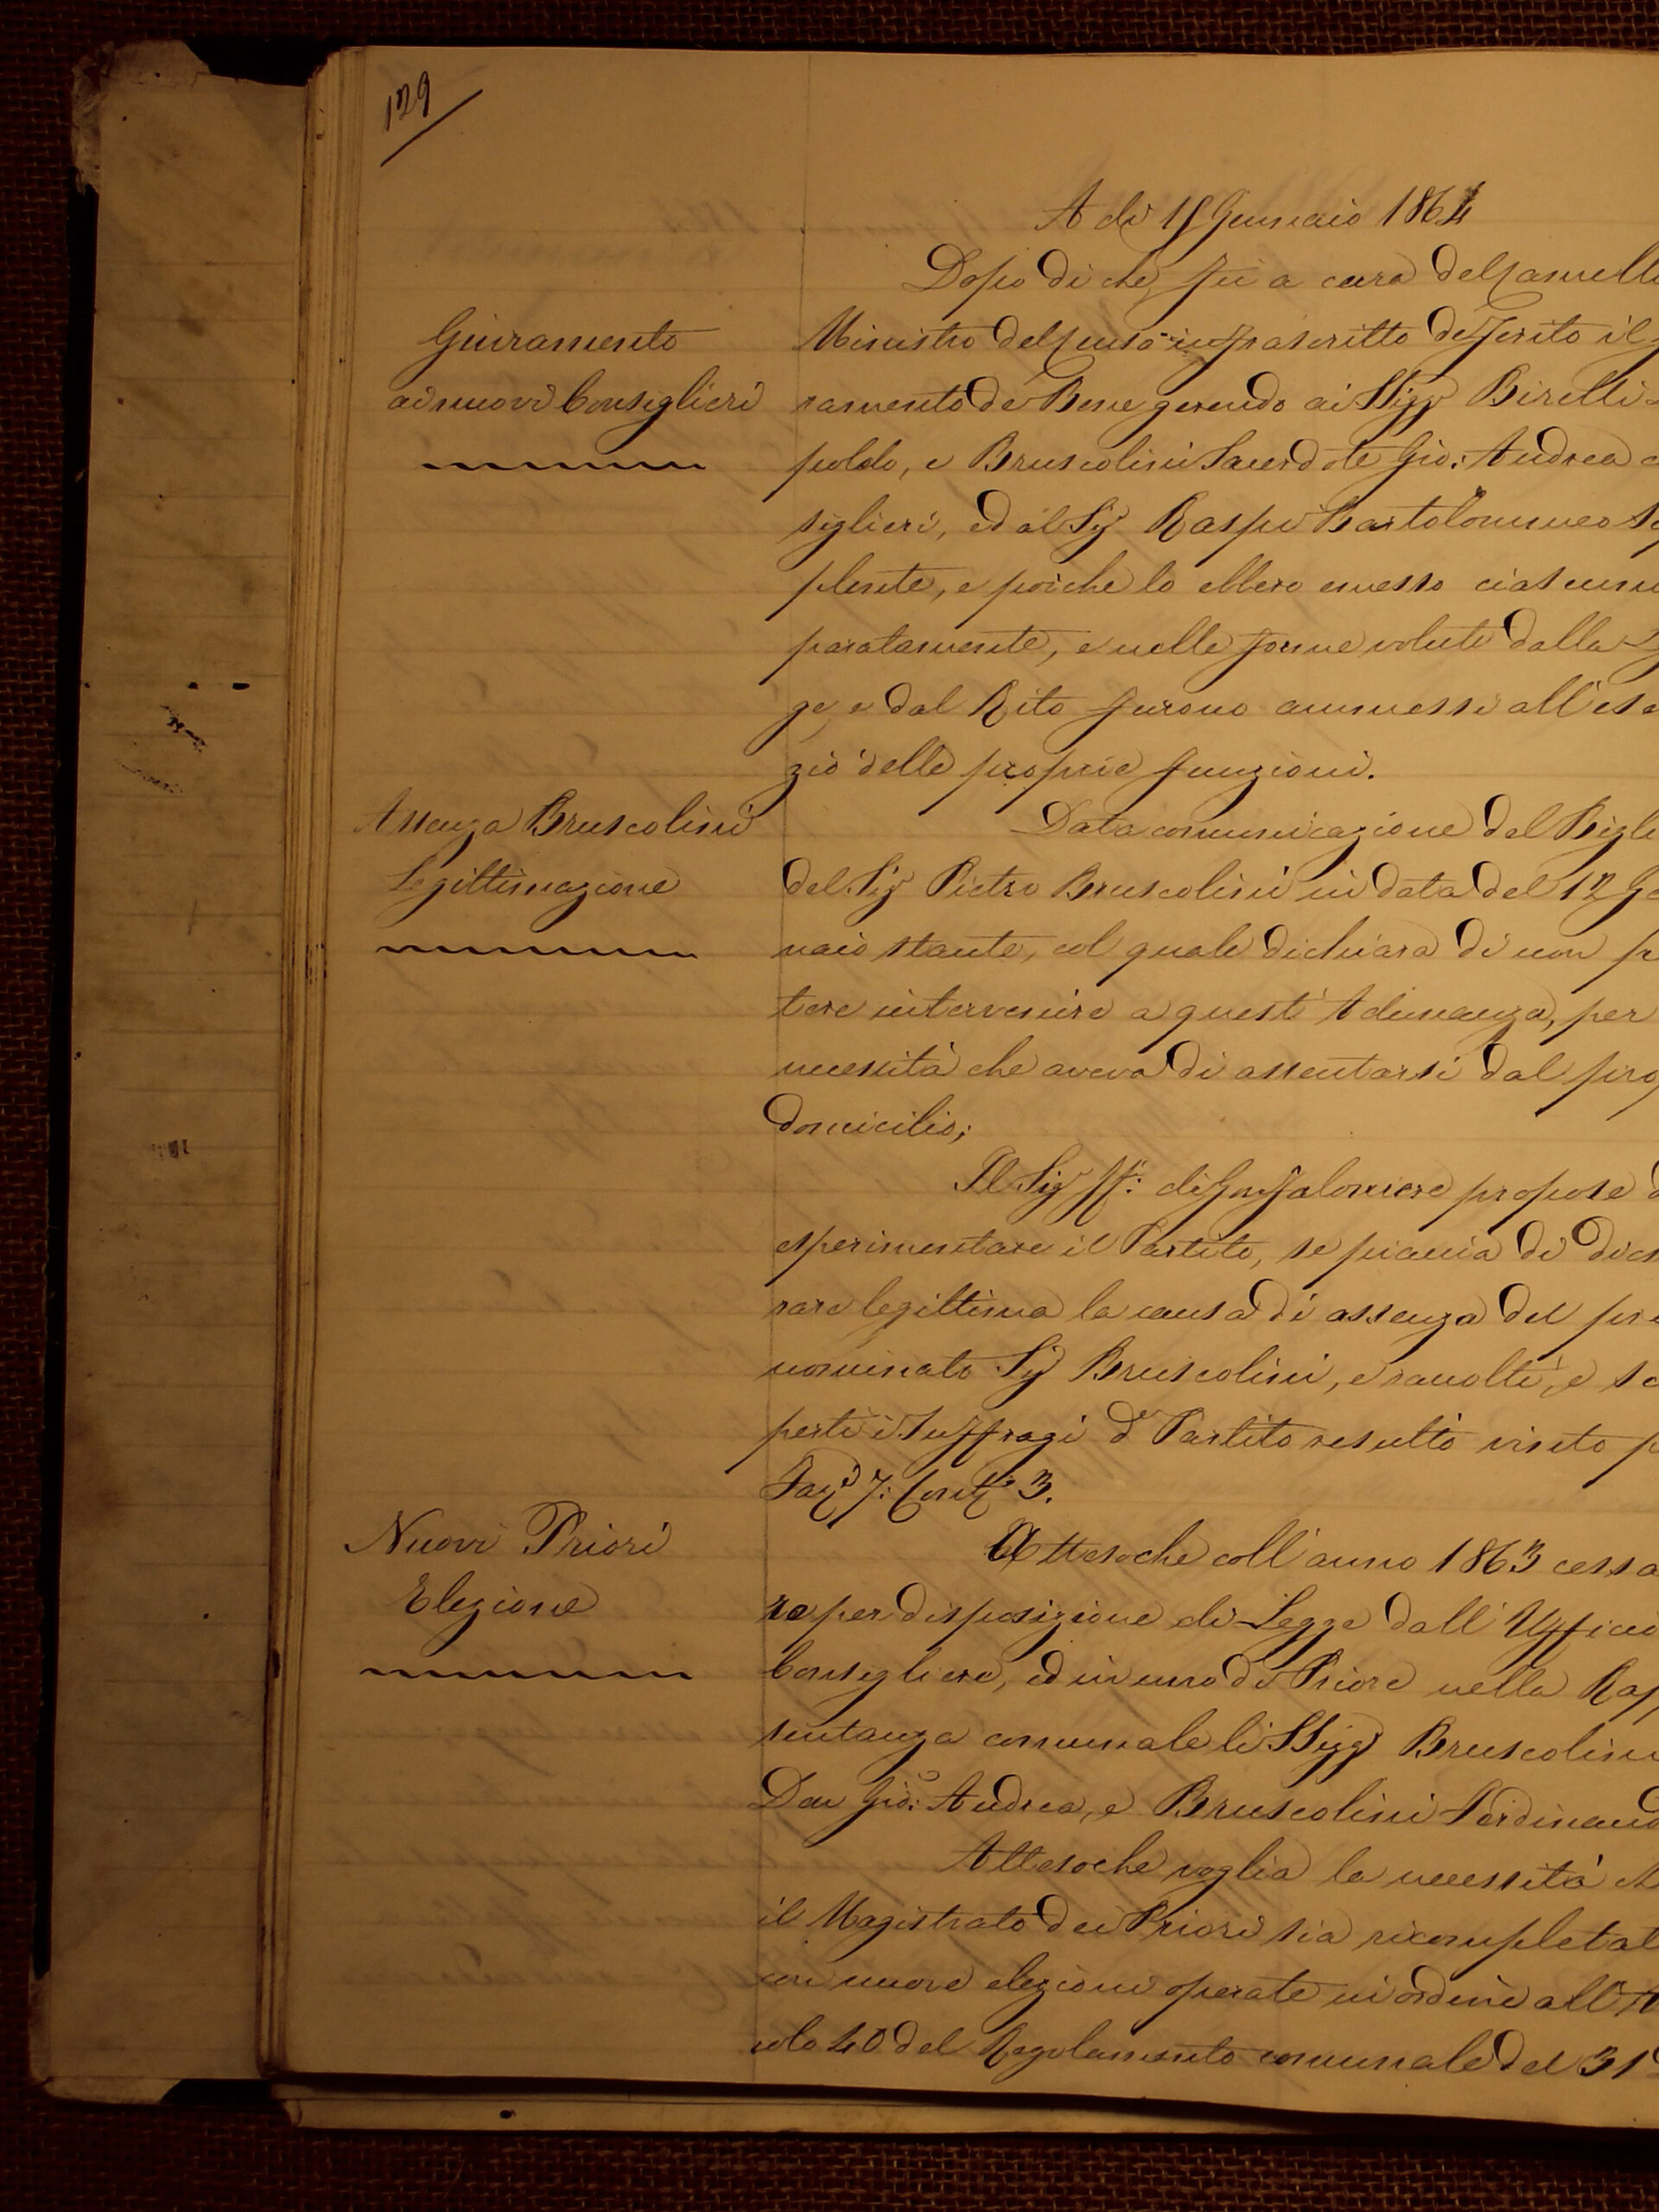 129
A di 15 Gennaio 1864
Dopo di che, fù a cura del Cancelli
Giuramento
ai nuovi Consiglieri
Ministro del Censo infrascritto deferito il
ramento de Bene gerendo ai SSigg Birelli
poldo, e Bruscolini Sacerdote Gio: Andrea
siglieri, ed al Sig Raspi Bartolommeo
plente, e poichè lo ebbero emesso ciascuno
paratamente, e nelle forme volute dalla
ge, e dal Rito furono ammessi all'eser
zio delle proprie funzioni.
Assenza Bruscolini
Legittimazione
Data comunicazione del Bigli
del Sig Pietro Bruscolini in data del 12 Ge
naio stante, col quale dichiara di non p
tere intervenire a questa Adunanza, per
necessità che aveva di assentarsi dal prop
domicilio;
Il Sig ff: di Gonfaloniere propose d
esperimentare il Partito, se piaccia di dich
rare legittima la causa di assenza del pre
nominato Sig Bruscolini, e raccolti, e sc
perti i Suffragi d° Partito resultò vinto p
Fav 7: Cont 3.
Nuovi Priori
Elezione
Attesochè coll'anno 1863 cessa
ro per disposizione di Legge dall'Ufficio
Consigliere, ed in uno di Priore nella Rap
sentanza comunale li SSigg Bruscolini
Don Gio: Andrea, e Bruscolini Ferdinando
Attesochè voglia la necessità ch
il Magistrato dei Priori sia ricompletat
con nuove elezioni operate in ordine all'A
colo 40 del Regolamento comunale del 31